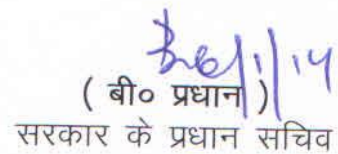 ( बी० प्रधान )
सरकार के प्रधान सचिव